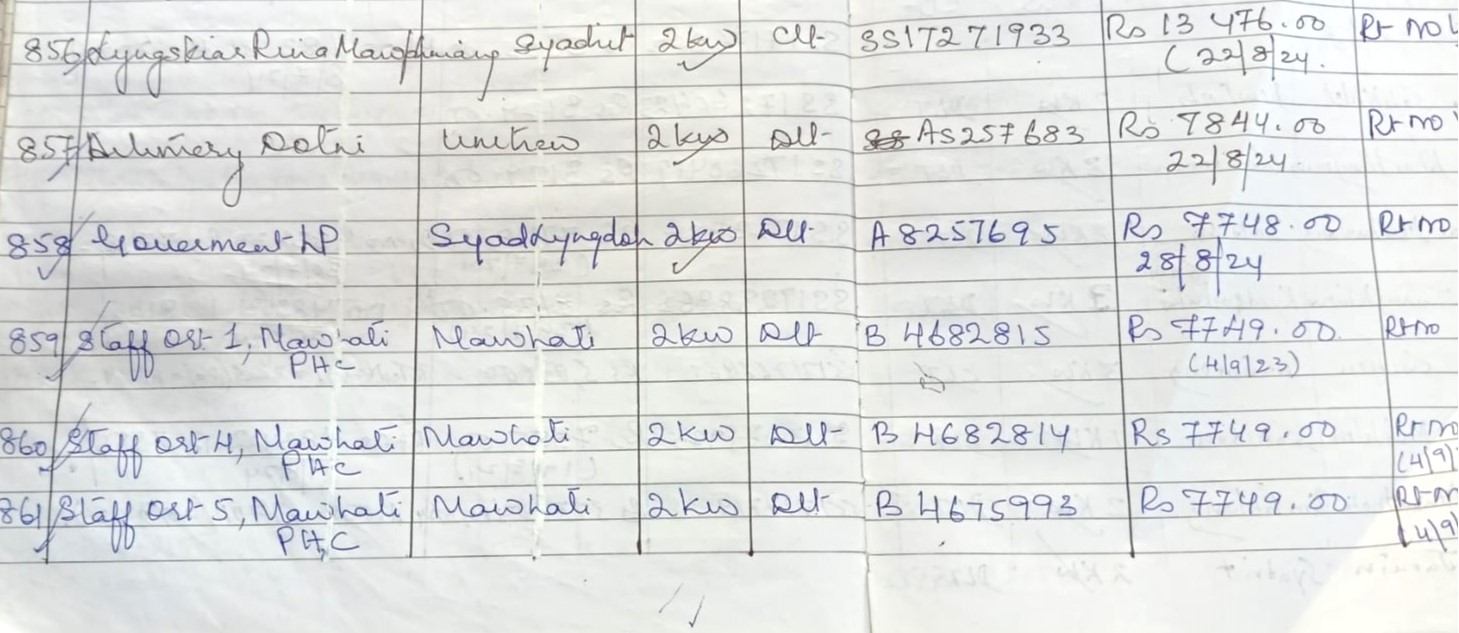 856 Lyngskiar Ruia Mawphniang Syadut 2kw SS17271933 Rs 13 476.00 Rt no
(22/8/24.
857 Dolni Umthew 2kw Dlt- AS257683 Rs 7844.00 Rt no
22/8/24.
858 Government LP Syadlyngdoh 2kw Dlt- A8257695 Rs 7748.00 Rt no
28/8/24
859 Staff Qrt 1, Mawhati Mawhati 2kw Dlt B 4682815 Rs 7749.00. Rt no
PHC (4/9/23)
860 Staff Qrt 4, Mawhati Mawhati 2kw Dlt- B 4682814 Rs 7749.00 Rt no
PHC (4/9/
861 Staff Qrt 5, Mawhati Mawhati 2kw Dlt B 4675993 Rs 7749.00 Rt n
PHC (4/9/